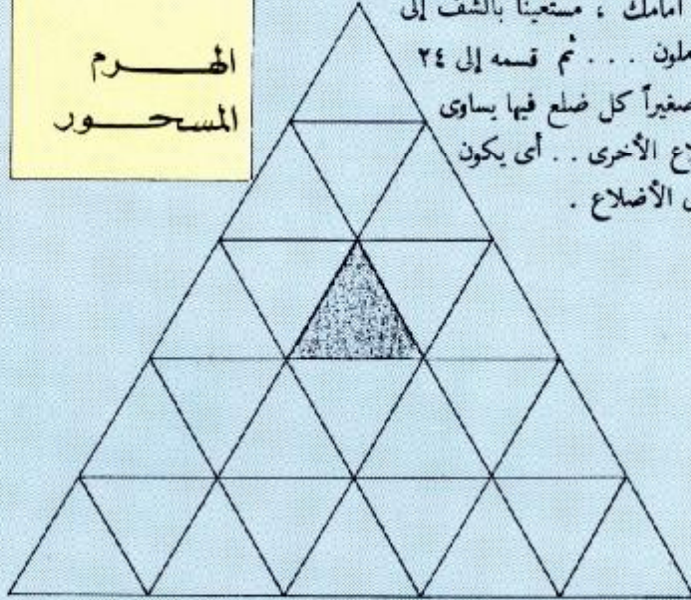 الهرم
المسحور
أمامك ، مستعيناً بالشف إلى
ملون . . . ثم قسمه إلى ٢٤
صغيراً كل ضلع فيها يساوى
لاع الأخرى . . أى يكون
الأضلاع .